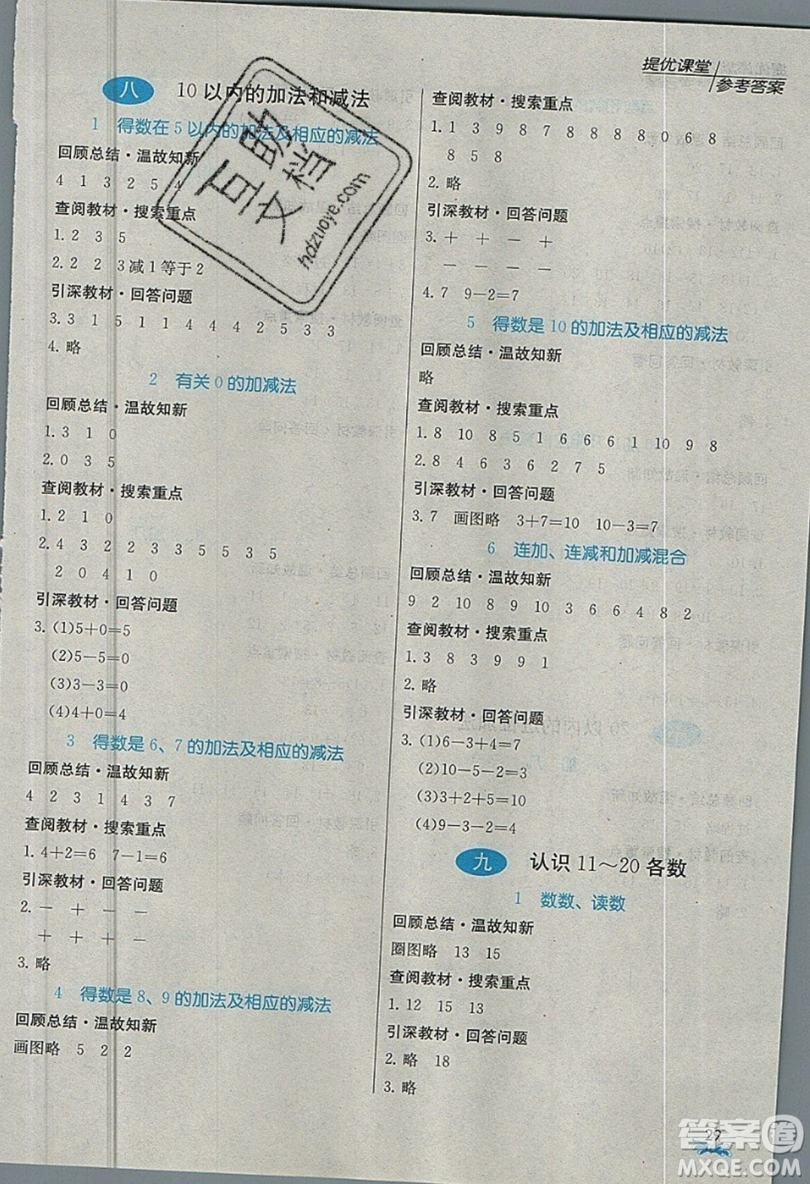 提优课堂
参考答案
八 10以内的加法和减法
1 得数在5以内的加法及相应的减法
回顾总结·温故知新
4 1 3 2 5 4
查阅教材·搜索重点
1.2 3 5
2.2 2 3减1等于2
引深教材·回答问题
3.3 1 5 1 1 4 4 2 5 3 3
4.略
2 有关0的加减法
回顾总结·温故知新
1.3 1 0
2.0 3 5
查阅教材·搜索重点
1.2 1 0
2.4 3 2 2 3 3 5 5 3 5
2 0 4 1 0
引深教材·回答问题
3.(1)5+0=5
(2)5−5=0
(3)3−3=0
(4)4+0=4
3 得数是6、7的加法及相应的减法
回顾总结·温故知新
4 2 3 1 4 3 7
查阅教材·搜索重点
1.4+2=6 7−1=6
引深教材·回答问题
2.− + − −
+ + + −
3.略
4 得数是8、9的加法及相应的减法
回顾总结·温故知新
画图略 5 2 2
查阅教材·搜索重点
1.1 3 9 8 7 8 8 8 8 0 6 8
8 5 8
2.略
引深教材·回答问题
3.+ + − +
− − − −
4.7 9−2=7
5 得数是10的加法及相应的减法
回顾总结·温故知新
略
查阅教材·搜索重点
1.8 10 8 5 1 6 6 6 1 10 9 8
2.8 4 6 3 6 2 7 5
引深教材·回答问题
3.7 画图略 3+7=10 10−3=7
6 连加、连减和加减混合
回顾总结·温故知新
9 2 10 8 9 10 3 6 6 4 8 2
查阅教材·搜索重点
1.3 8 3 9 9 1
2.略
引深教材·回答问题
3.(1)6−3+4=7
(2)10−5−2=3
(3)3+2+5=10
(4)9−4−3=2
九 认识11～20各数
1 数数、读数
回顾总结·温故知新
圈图略 13 15
查阅教材·搜索重点
1.12 15 13
引深教材·回答问题
2.略 18
3.略
互助文档
hdzuoye.com
答案圈
MXQE.COM